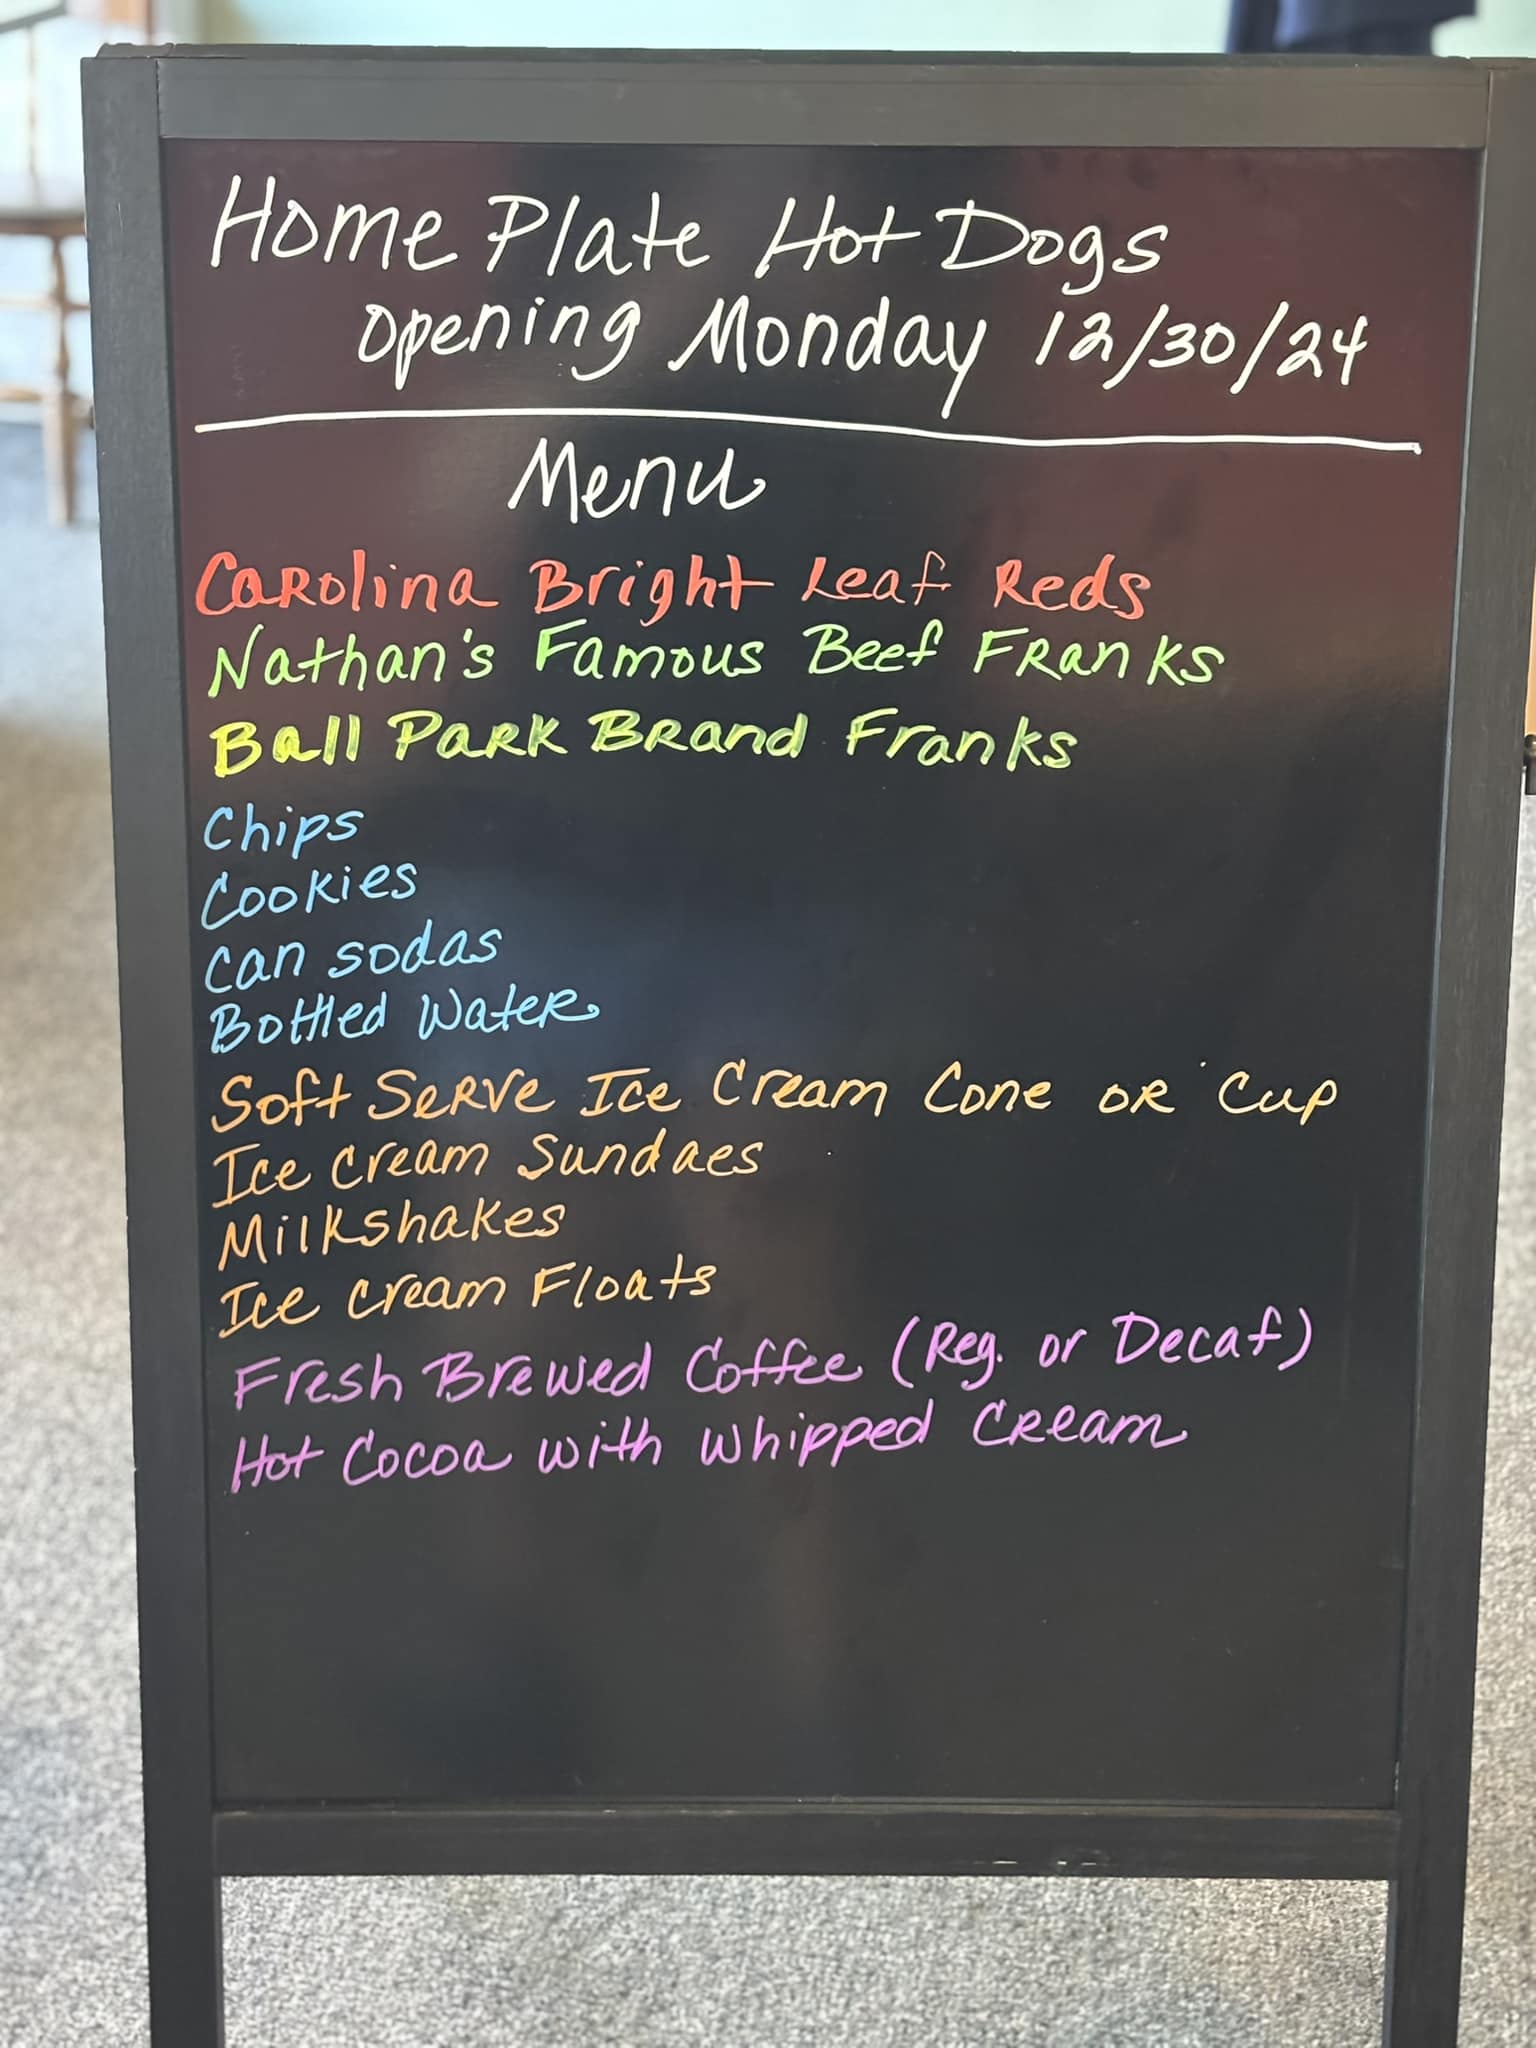 Home Plate Hot Dogs
Opening Monday 12/30/24
Menu
Carolina Bright Leaf Reds
Nathan's Famous Beef Franks
Ball Park Brand Franks
Chips
Cookies
Can sodas
Bottled Water
Soft Serve Ice Cream Cone or Cup
Ice Cream Sundaes
Milkshakes
Ice Cream Floats
Fresh Brewed Coffee (Reg. or Decaf)
Hot Cocoa with Whipped Cream